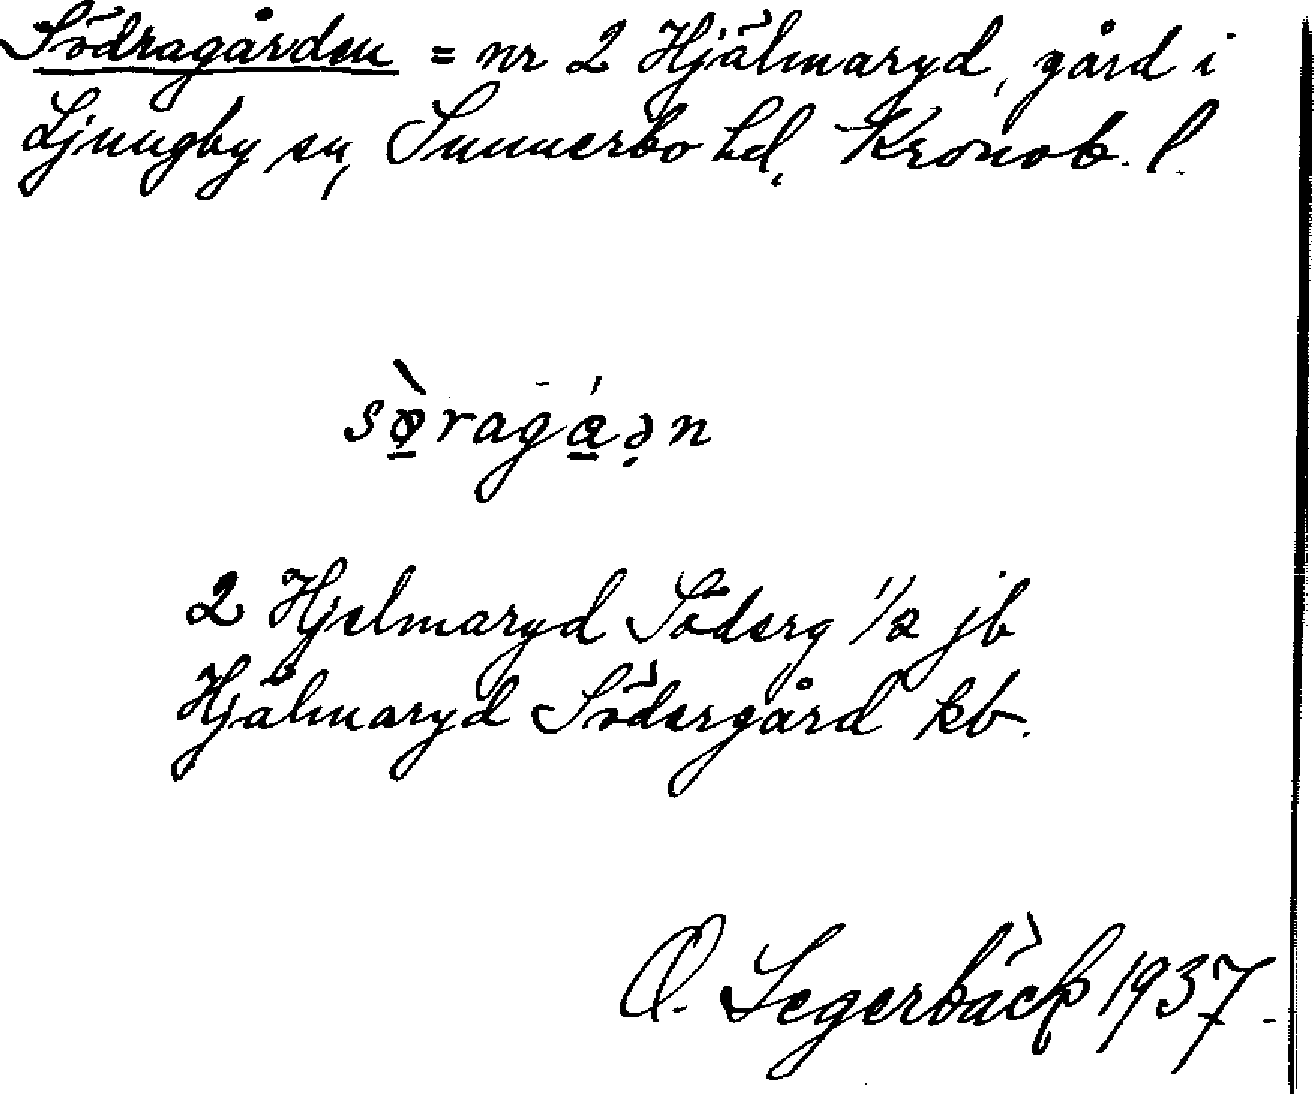 Södragården = nr 2 Hjälmaryd, gård i
Ljungby sn, Sunnerbo hd, Kronob. l.
sø̠̀ragá̠ə̣n
2 Hjelmaryd Söderg 1/2 jb
Hjälmaryd Södergård kb.
O. Segerbäck 1937.